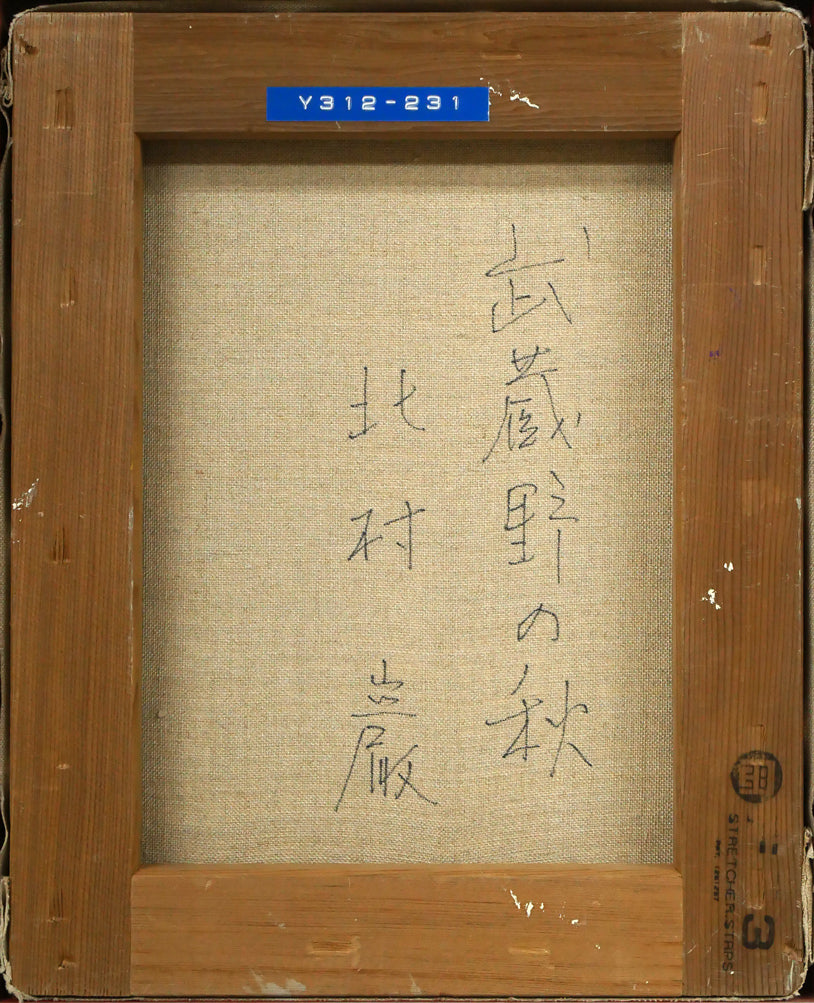 Y312-231
武蔵野の秋
北村 巖
STRETCHER.STAPS
3